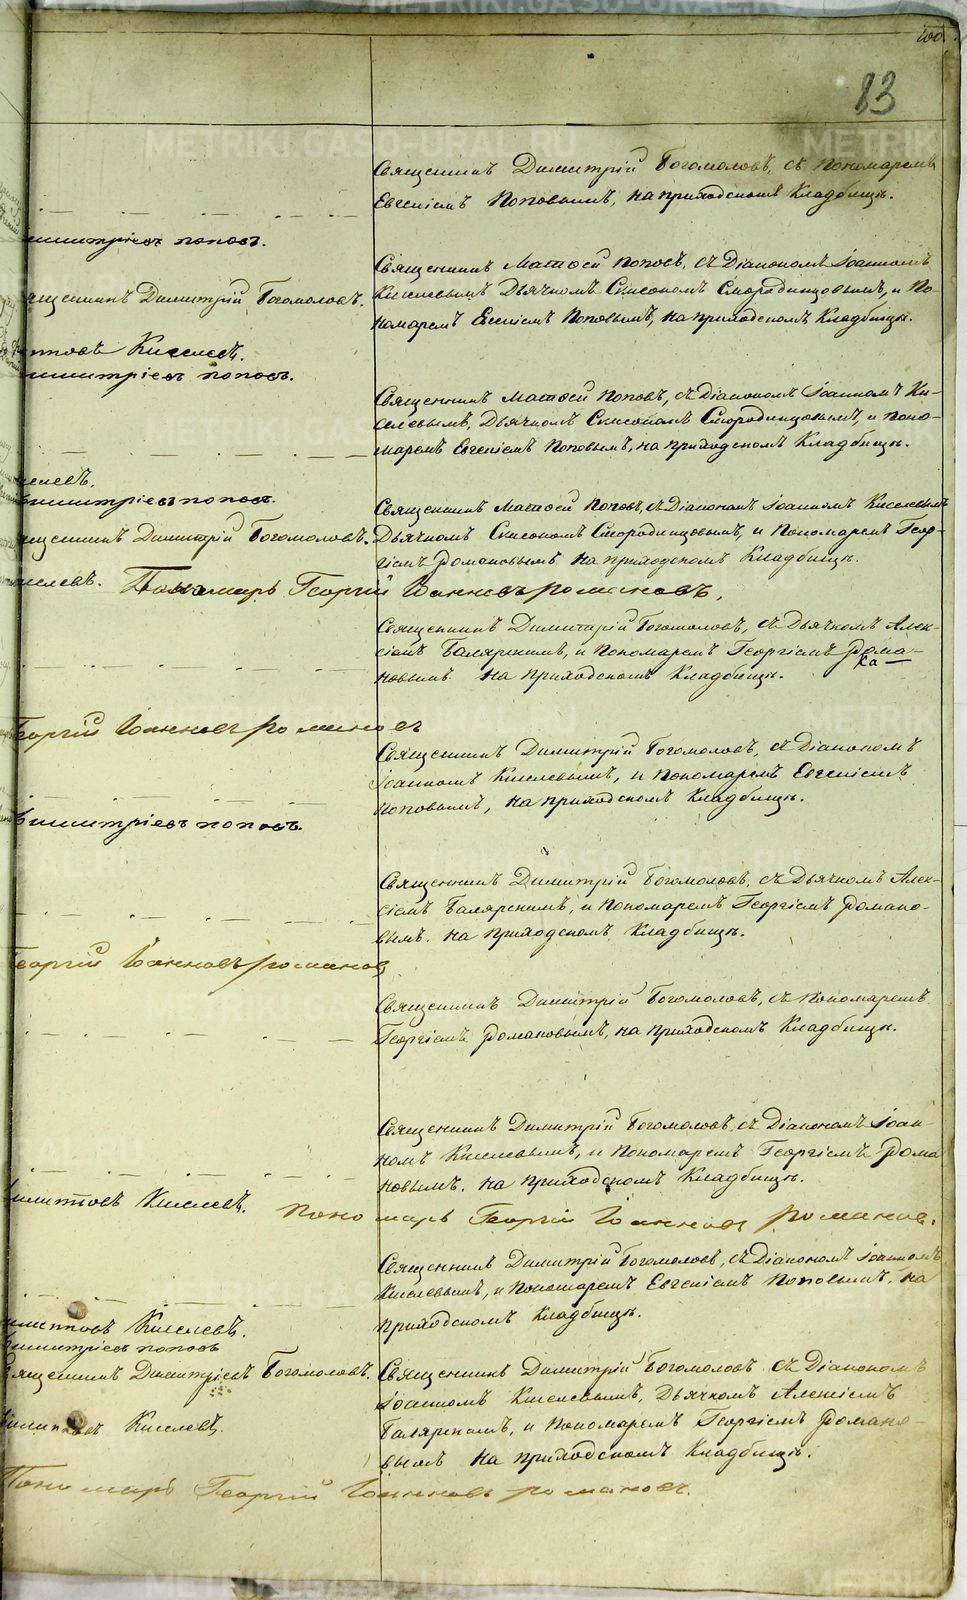 83
Священникъ Димитрій Богомоловъ, съ Пономаремъ
Евгеніемъ Поповымъ, на приходскомъ Кладбищѣ.
Димитріевъ Поповъ.
Священникъ Матѳей Поповъ, съ Діакономъ Іоанномъ
Священникъ Димитрій Богомоловъ.
Киселевымъ Дьячкомъ Смородинцовымъ, и По-
номаремъ Евгеніемъ Поповымъ, на приходскомъ Кладбищѣ.
Киселевъ.
митріевъ поповъ.
Священникъ Матѳей Поповъ, съ Діакономъ Іоанномъ Ки-
селевымъ, Дьячкомъ Смородинцовымъ, и Поно-
маремъ Евгеніемъ Поповымъ, на приходскомъ Кладбищѣ.
селевъ.
митріевъ поповъ.
Священникъ Матѳей Поповъ, съ Діакономъ Іоанномъ Киселевымъ
щенникъ Димитрій Богомоловъ.
Дьячкомъ Смородинцовымъ, и Пономаремъ Геор-
гіемъ Романовымъ на приходскомъ Кладбищѣ.
иселевъ. Пономарь Георгій Іоанновъ романовъ.
Священникъ Димитрій Богомоловъ, съ Дьячкомъ Алек-
сіемъ Баляркинымъ, и Пономаремъ Георгіемъ Рома-
новымъ на приходскомъ Кладбищѣ.
Георгій Іоанновъ романовъ
Священникъ Димитрій Богомоловъ, съ Діакономъ
Іоанномъ Киселевымъ, и Пономаремъ Евгеніемъ
Поповымъ, на приходскомъ Кладбищѣ.
митріевъ поповъ.
Священникъ Димитрій Богомоловъ, съ Дьячкомъ Алек-
сіемъ и Пономаремъ Георгіемъ Романо-
вымъ. на приходскомъ Кладбищѣ.
Георгій Іоанновъ романовъ
Священникъ Димитрій Богомоловъ, съ Пономаремъ
Георгіемъ Романовымъ, на приходскомъ Кладбищѣ.
Священникъ Димитрій Богомоловъ, съ Діакономъ Іоан-
номъ Киселевымъ, и Пономаремъ Георгіемъ Рома
новымъ. на приходскомъ Кладбищѣ.
Киселевъ. пономарь Георгій Іоанновъ романовъ.
Священникъ Димитрій Богомоловъ, съ Діакономъ Іоанномъ
Киселевымъ, и Пономаремъ Евгеніемъ Поповымъ, на
приходскомъ Кладбищѣ.
Киселевъ.
митріевъ поповъ
Священникъ Димитріевъ Богомоловъ.
Священникъ Димитрій Богомоловъ съ Діакономъ
Іоанномъ Киселевымъ, Дьячкомъ Алексіемъ
Киселевъ.
и Пономаремъ Георгіемъ Романо-
вымъ на приходскомъ Кладбищѣ.
Пономарь Георгій Іоанновъ романовъ.
METRIKI.GASO-URAL.RU